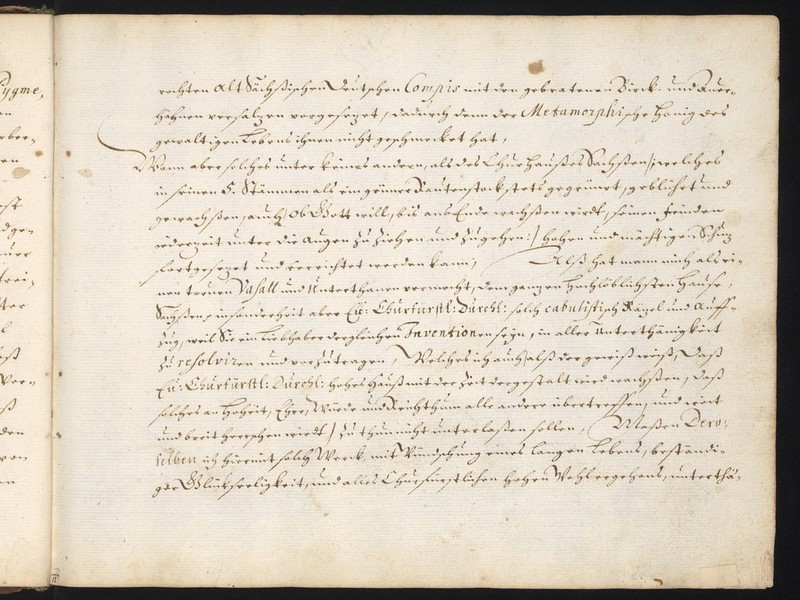 Pygme,
rechten Alt Sächßischen Deutschen Compis mit den gebratenen Birck- und Auer-
hähnen versalzen vorgesezet, dadurch denn der Metamorphische Honig des
gewaltigen Lebens ihnen nicht geschmecket hat,
Wann aber solches unter keines andern, als des Chur Haußes Sachßen /: welches
in seinen 5. Stämmen als ein grüner Rautenstock stets gegrünet, geblühet und
gewachßen, auch, ob Gott will, bis ans Ende wachßen wirdt, seinen feinden
iederzeit unter die Augen zu ziehen und zugehen :/ hohen und mächtigen Schuz
fortgesezet und verrichtet werden kann; Alß hat mann mich als ei-
nen treuen Vasall und Unterthanen vermocht, dem ganzen Hochlöblichsten Hauße,
Sachßen, insonderheit aber Eu: Churfürstl: Durchl: solch cabulistisch Räzel und Auff-
zug, weil Sie ein Liebhaber dergleichen Inventionen seyn, in aller Unterthänigkeit
zu resolviren und vorzutragen / Welches ich auch alß der gewiß weiß, daß
Eu: Churfürstl: Durchl: hohes Hauß mit der Zeit dergestalt wird wachßen, daß
solches an Hoheit, Ehre, Würde und Reichthum alle andere übertreffen, und weit
und breit herrschen wirdt / zu thun nicht unterlaßen sollen, Maßen Dero-
selben ich hiermit solch Werck, mit Wündschung eines langen Lebens, beständi-
ger Glückseeligkeit, und alles Churfürstlichen hohen Wohlergehens, unterthä-